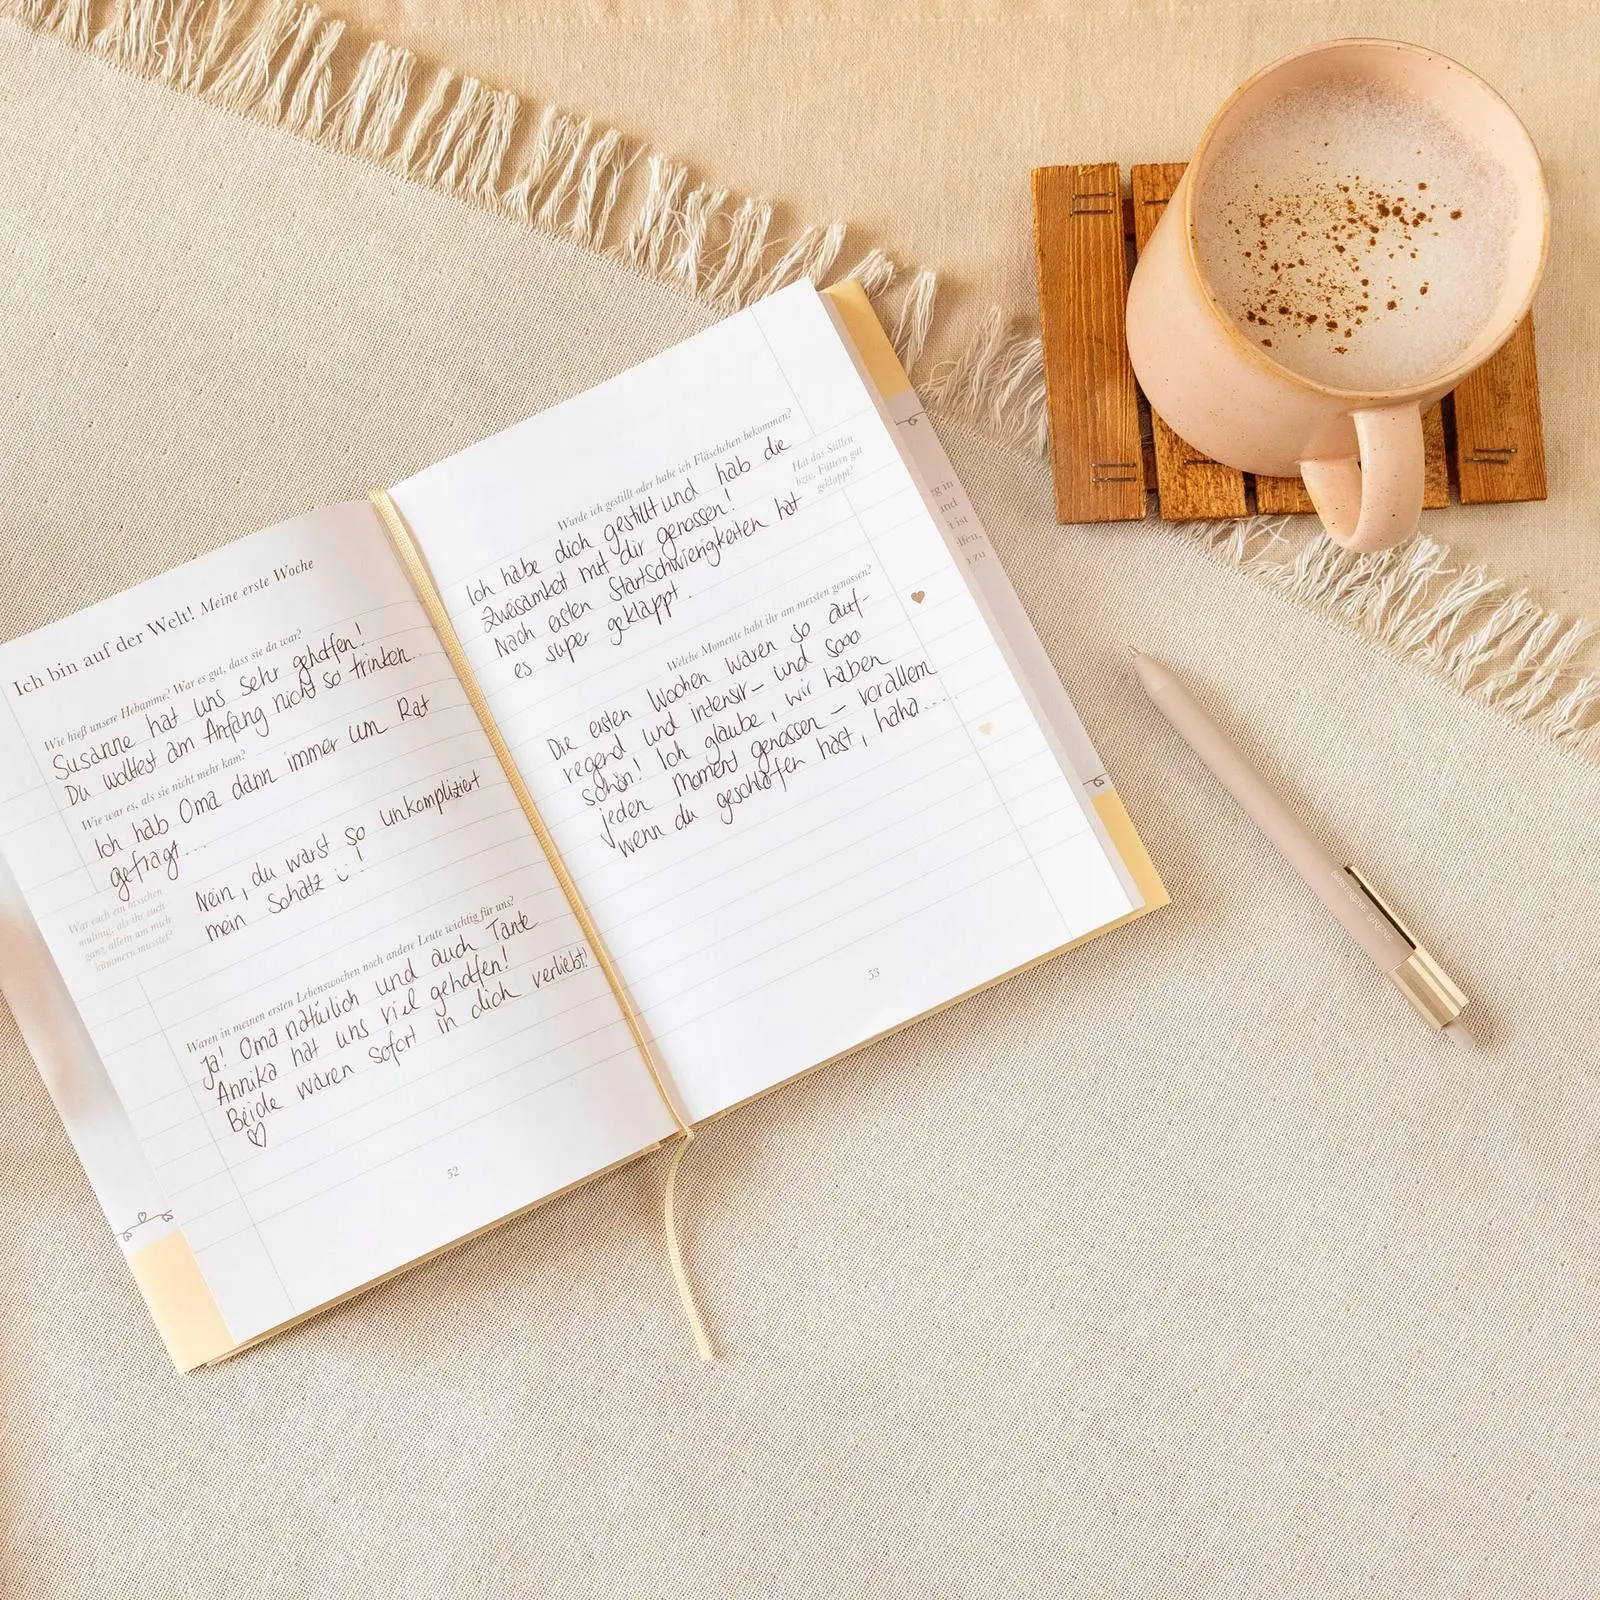 Ich bin auf der Welt! Meine erste Woche
Wie hieß unsere Hebamme? War es gut, dass sie da war?
Susanne hat uns sehr geholfen!
Du wolltest am Anfang nicht so trinken...
Wie war es, als sie nicht mehr kam?
Ich hab Oma dann immer um Rat
gefragt...
War euch ein bisschen
mulmig, als ihr euch
ganz allein um mich
kümmern musstet?
Nein, du warst so unkompliziert
mein Schatz !
Waren in meinen ersten Lebenswochen noch andere Leute wichtig für uns?
Ja! Oma natürlich und auch Tante
Annika hat uns viel geholfen!
Beide waren sofort in dich verliebt!
♡
52
Wurde ich gestillt oder habe ich Fläschchen bekommen?
Ich habe dich gestillt und hab die
Zweisamkeit mit dir genossen!
Hat das Stillen
bzw. Füttern gut
geklappt?
Nach ersten Startschwierigkeiten hat
es super geklappt.
Welche Momente habt ihr am meisten genossen?
Die ersten Wochen waren so auf-
regend und intensiv – und sooo
schön! Ich glaube, wir haben
jeden Moment genossen – vorallem
wenn du geschlafen hast, haha...
53